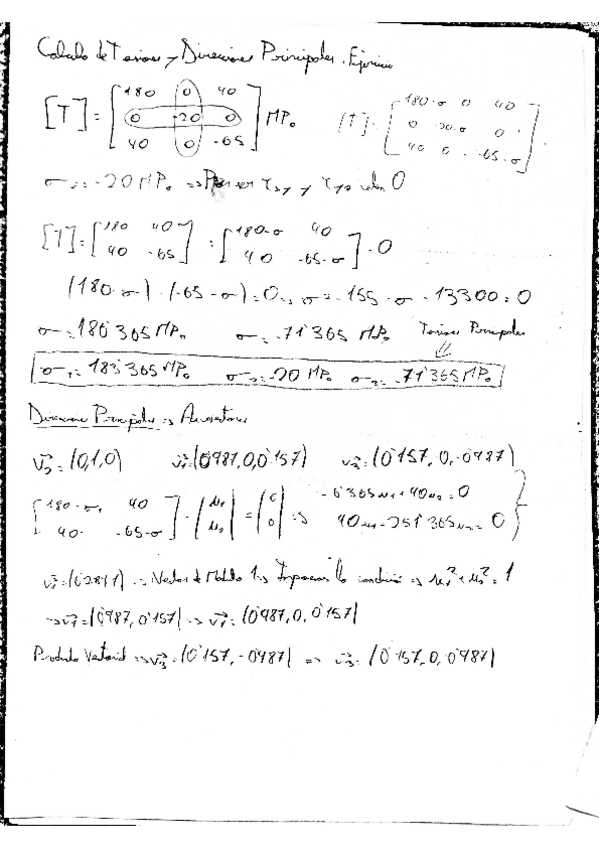 Calculo de Tensiones y Direcciones Principales. Ejercicio
[T] = [180 0 40 / 0 -20 0 / 40 0 -65] MPa [T] = [180-σ 0 40 / 0 -20-σ 0 / 40 0 -65-σ]
σ₂ = -20 MPa => Por ser τxy y τyz valen 0
[T] = [180 40 / 40 -65] = [180-σ 40 / 40 -65-σ] = 0
(180-σ)·(-65-σ) = 0 σ 155·σ - 13300 = 0
σ = 186'365 MPa σ = -71'365 MPa Tensiones Principales
σ₁ = 183'365 MPa σ₂ = -20 MPa σ₃ = -71'365 MPa
Direcciones Principales => Autovectores
v₂ = (0,1,0) v₁ = (0'987, 0, 0'157) v₃ = (0'157, 0, -0'987)
[180-σ₁ 40 / 40 -65-σ] · (u₁ / u₃) = (0 / 0) => -6'365u₁ + 40u₃ = 0
40u₁ - 251'365u₃ = 0
=> Vector de Modulo 1 => Imponemos la condición => u₁² + u₃² = 1
=> v₁ = (0'987, 0'157) => v₁ = (0'987, 0, 0'157)
Producto Vectorial => v₃ = (0'157, -0'987) => v₃ = (0'157, 0, 0'987)